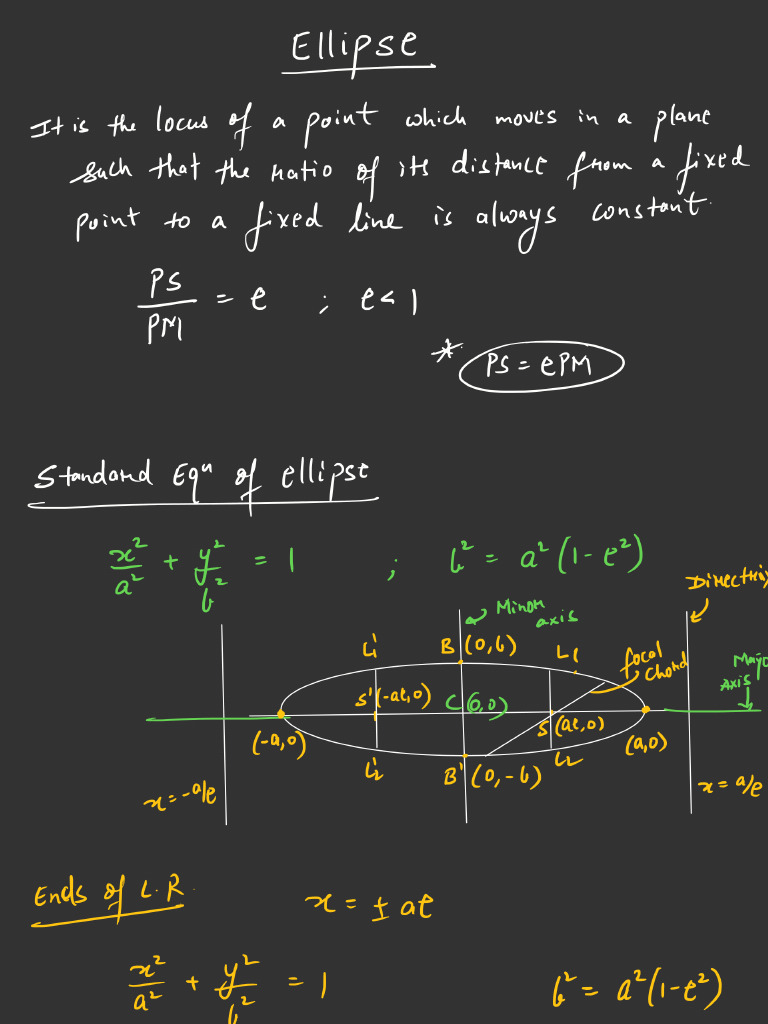 Ellipse
It is the locus of a point which moves in a plane
such that the ratio of its distance from a fixed
point to a fixed line is always constant.
PS/PM = e ; e < 1
* PS = ePM
Standard Eqⁿ of ellipse
x²/a² + y²/b² = 1 ; b² = a²(1 - e²)
Directrix
Minor axis
L₁' B (0,b) L₁ focal chord
Major Axis
S' (-ae,0) C (0,0) S (ae,0)
(-a,0) (a,0)
L₂' B' (0,-b) L₂
x = -a/e x = a/e
Ends of L.R.
x = ± ae
x²/a² + y²/b² = 1 b² = a²(1-e²)